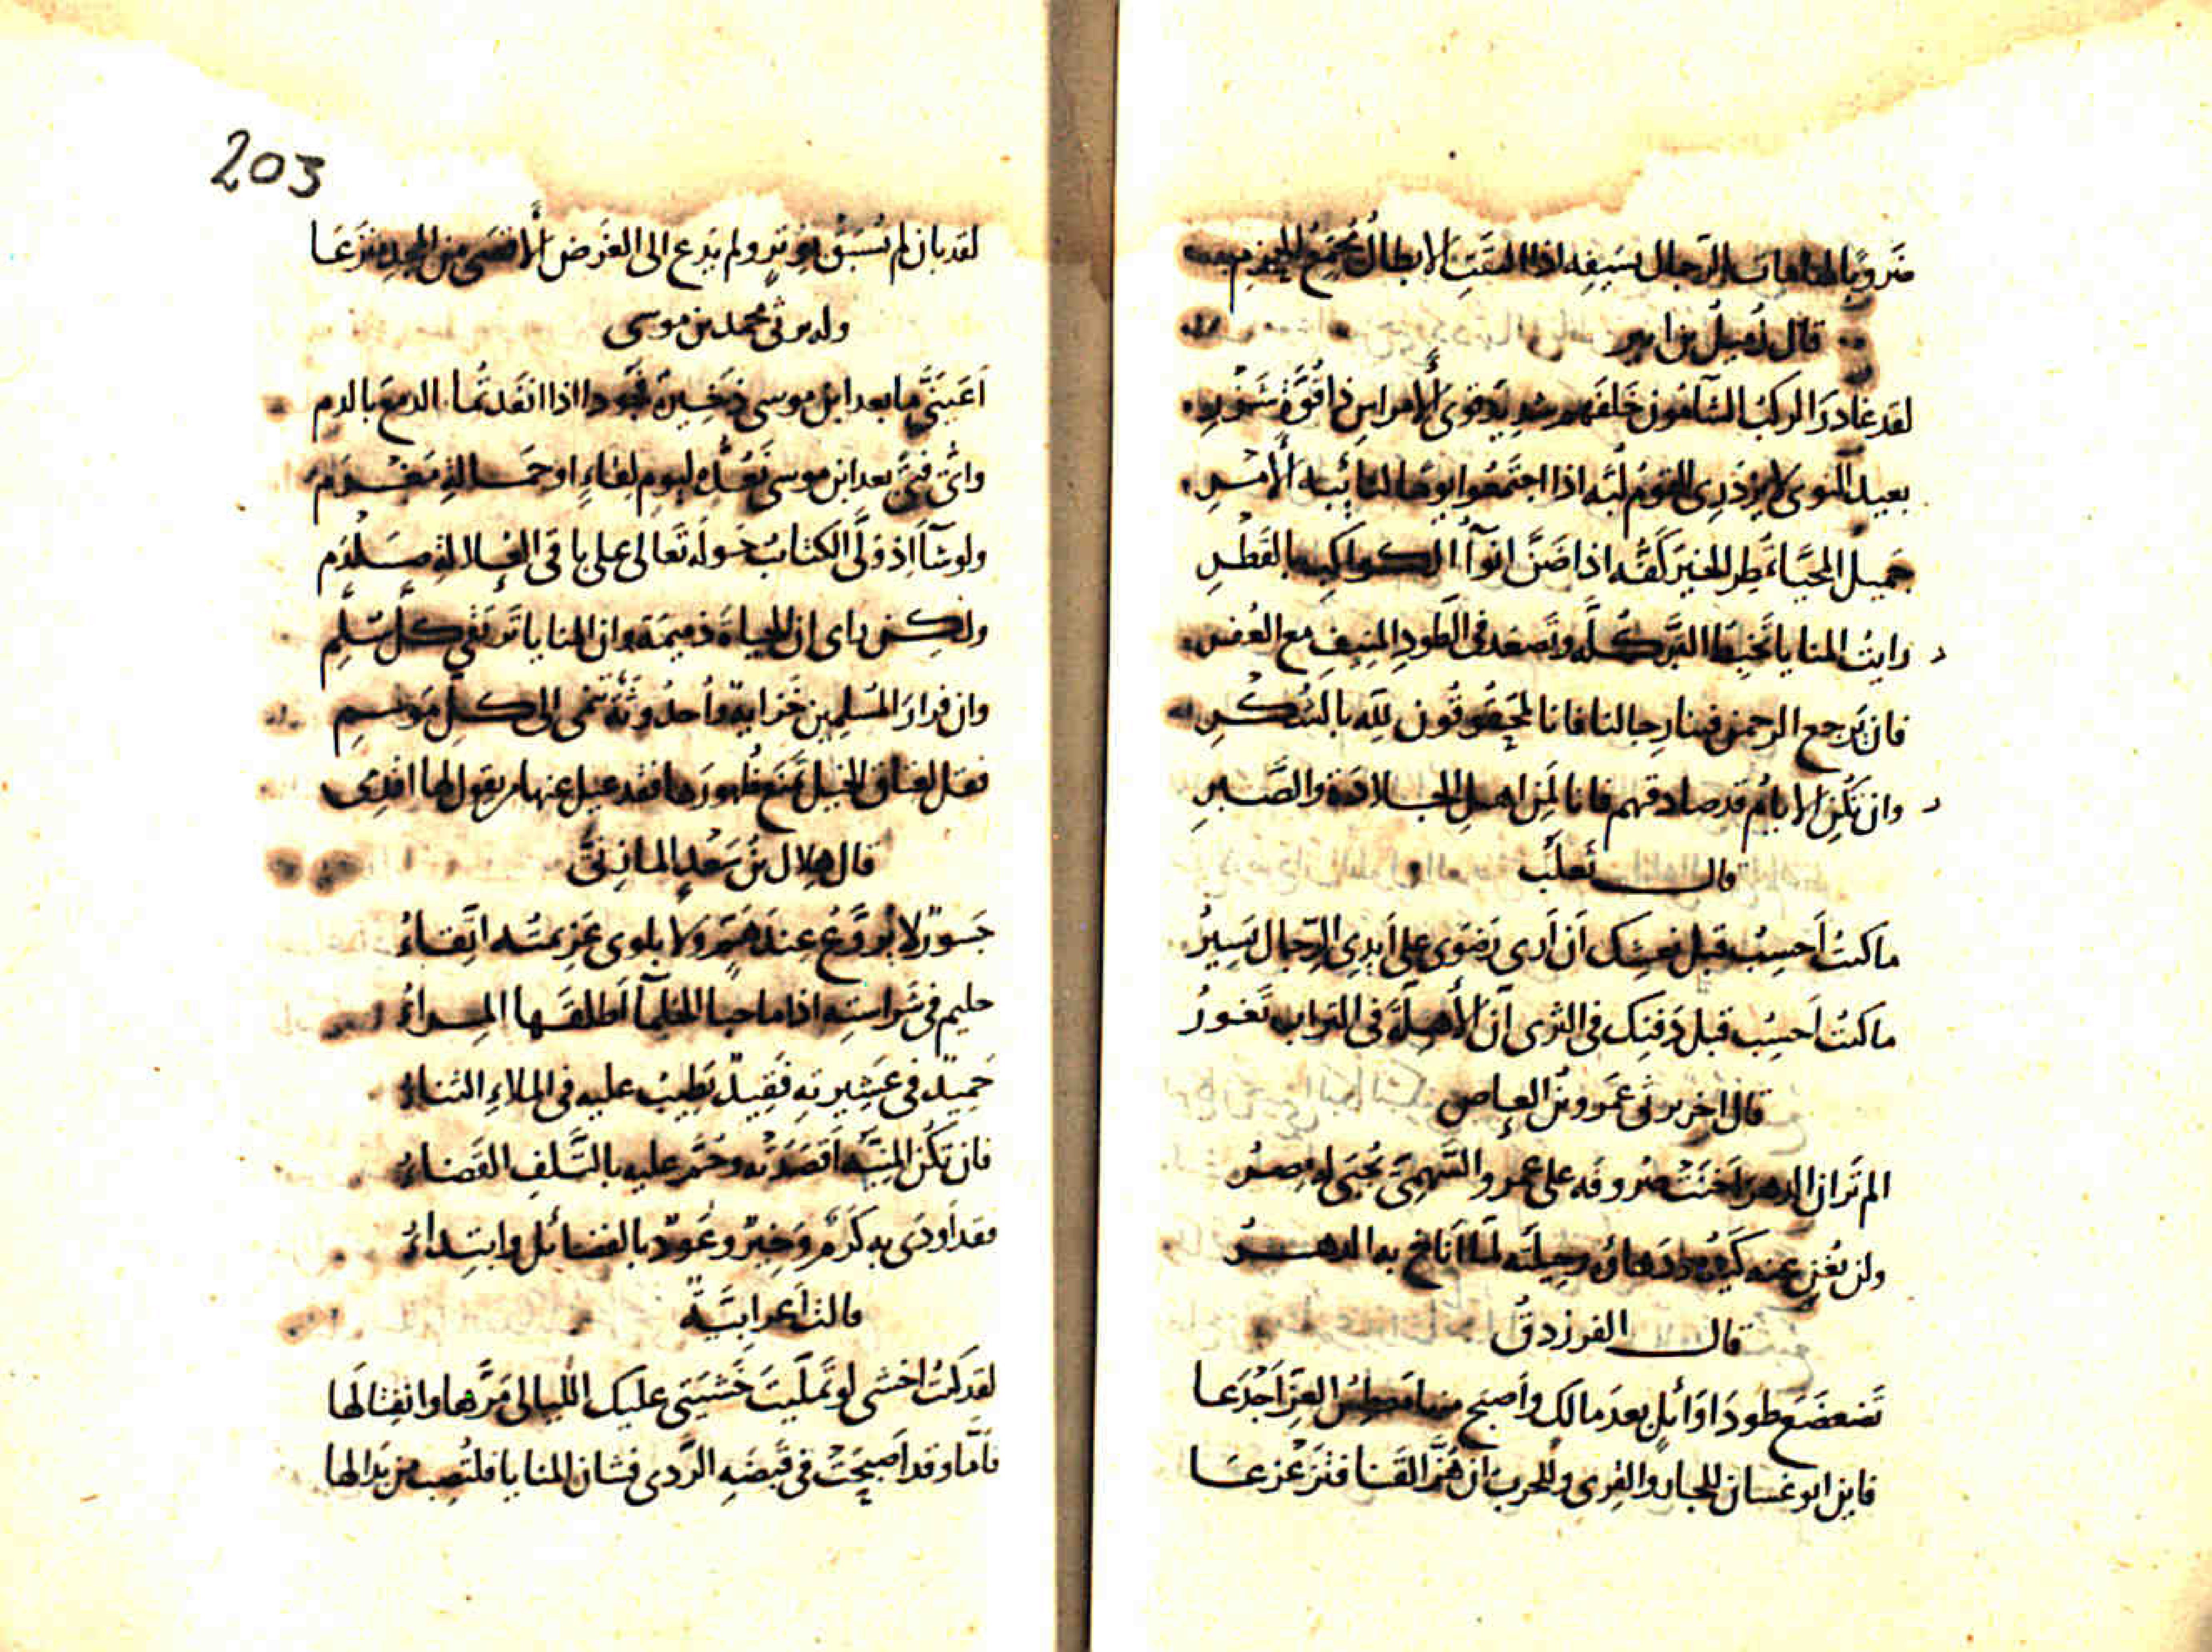 ضروبا لهامات الرجال بسيفه اذا التفت الابطال مجتمع
قال زميل بن
لقد غادر الركب الشآمون خلفهم شديد قوى الامراس ذا قوة شزر
بعيد النوى لا يزدرى القوم لبه اذا اجتمعوا يوما لنائبة الأمر
جميل المحيا تمطر الخير كفه اذا ضن انوآ الكواكب بالقطر
رايت المنايا تخبط البر كله وتصعد فى الطود المنيف مع العفر
فان يرجع الرحمن فينا رجالنا فانا لمحقوقون لله بالشكر
وان تكن الايام قد صادفتهم فانا لمن اهل الجلادة والصبر
قال ثعلب
ما كنت احسب قبل نعشك ان ارى رضوى على ايدى الرجال يسير
ما كنت احسب قبل دفنك فى الثرى ان الأهلة فى التراب تغور
قال اخر يرثى عمرو بن العاص
الم تر ان الدهر اخنت صروفه على عمرو السهمى تجبى له مصر
ولن يغن عنه كيده ودهاؤه وحيلته لما اناخ به الدهر
قال الفرزدق
تضعضع طودا وائل بعد مالك واصبح منها معطس العز اجدعا
فاين ابو غسان للجار والقرى وللحرب ان هز القنا فتزعزعا
203
لقد بان لم يسبق بوتر ولم يدع الى الغرض الأقصى من المجد منزعا
وله يرثى محمد بن موسى
اعينى ما بعد ابن موسى ذخيرة فجودا اذا انفدتما الدمع بالدم
واى فتى بعد ابن موسى نعده ليوم لقاء او حمالة مغرم
ولو شآ اذ ولى الكتائب حوله تعالى على باقى العلالة صلدم
ولكن راى ان الحياة ذميمة وان المنايا ترتقى كل سلم
وان فرار المسلمين خزاية واحدوثة تنمى الى كل موسم
فقل لعتاق الخيل تمنع ظهورها فقد عيل عنها من يقول لها اقدمى
قال هلال بن سعد المازنى
جسور لا يروع عند هم ولا يلوى عزيمته اتقاء
حليم فى شراسته اذا ما حبا الحلمآ اطلقها المراء
حميد فى عشيرته فقيد يطيب عليه فى الملاء الثناء
فان تكن المنية اقصدته وحم عليه بالتلف القضاء
فقد اودى به كرم وخير وعود بالفضائل وابتداء
قالت اعرابية
لقد كنت اخشى لو تمليت خشيتى عليك الليالى مرها وانفتالها
فاما وقد اصبحت فى قبضة الردى فشان المنايا فلتصب من بدا لها